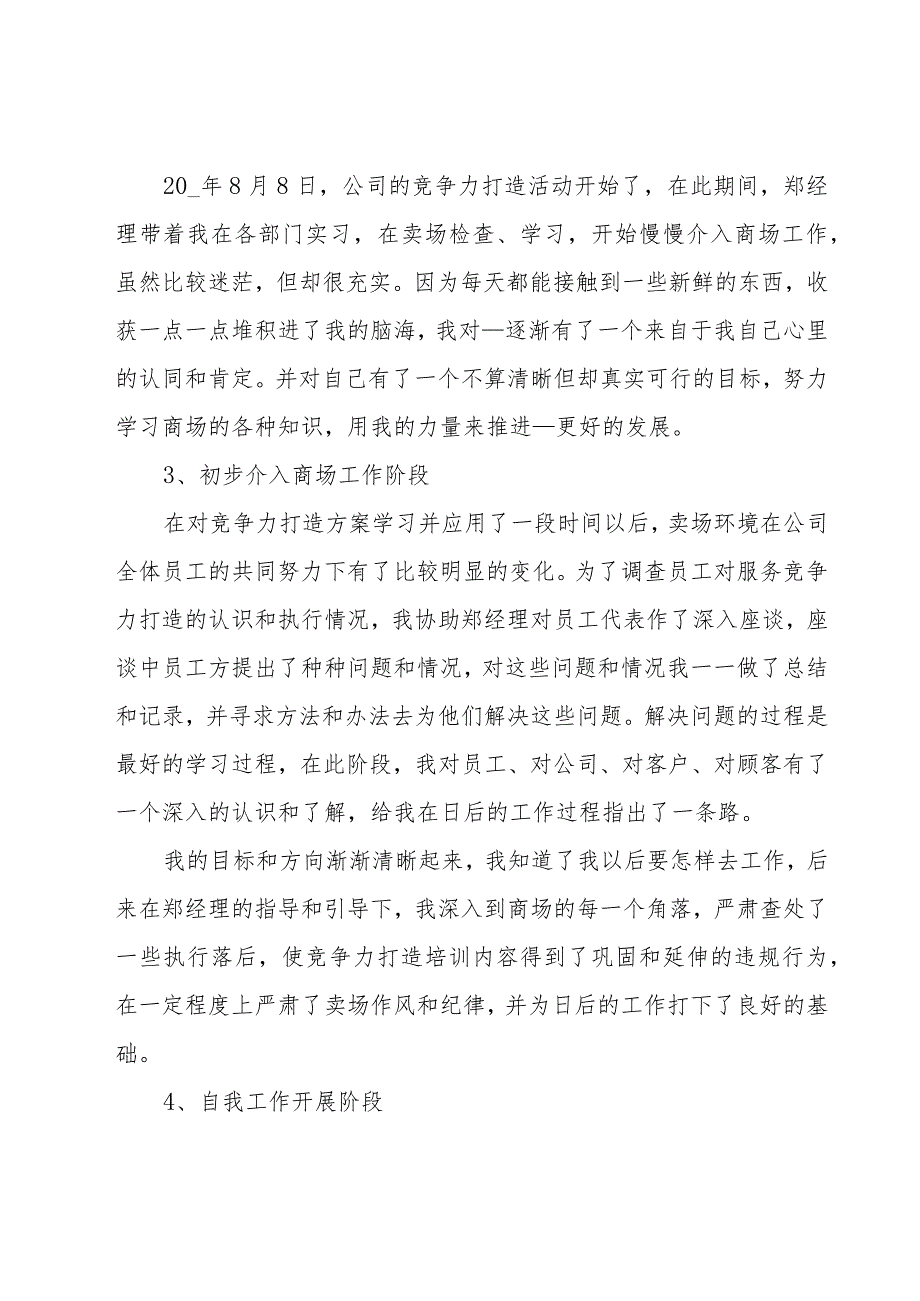 20_年8月8日，公司的竞争力打造活动开始了，在此期间，郑经
理带着我在各部门实习，在卖场检查、学习，开始慢慢介入商场工作，
虽然比较迷茫，但却很充实。因为每天都能接触到一些新鲜的东西，收
获一点一点堆积进了我的脑海，我对—逐渐有了一个来自于我自己心里
的认同和肯定。并对自己有了一个不算清晰但却真实可行的目标，努力
学习商场的各种知识，用我的力量来推进—更好的发展。
3、初步介入商场工作阶段
在对竞争力打造方案学习并应用了一段时间以后，卖场环境在公司
全体员工的共同努力下有了比较明显的变化。为了调查员工对服务竞争
力打造的认识和执行情况，我协助郑经理对员工代表作了深入座谈，座
谈中员工方提出了种种问题和情况，对这些问题和情况我一一做了总结
和记录，并寻求方法和办法去为他们解决这些问题。解决问题的过程是
最好的学习过程，在此阶段，我对员工、对公司、对客户、对顾客有了
一个深入的认识和了解，给我在日后的工作过程指出了一条路。
我的目标和方向渐渐清晰起来，我知道了我以后要怎样去工作，后
来在郑经理的指导和引导下，我深入到商场的每一个角落，严肃查处了
一些执行落后，使竞争力打造培训内容得到了巩固和延伸的违规行为，
在一定程度上严肃了卖场作风和纪律，并为日后的工作打下了良好的基
础。
4、自我工作开展阶段